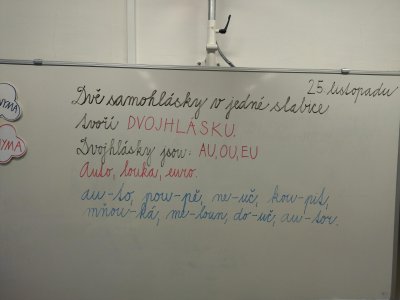 25. listopadu
Dvě samohlásky v jedné slabice
tvoří DVOJHLÁSKU.
Dvojhlásky jsou: AU, OU, EU
Auto, louka, euro.
au-to, pou-pě, ne-uč, kou-pit,
mňou-ká, me-loun, do-uč, au-tor.